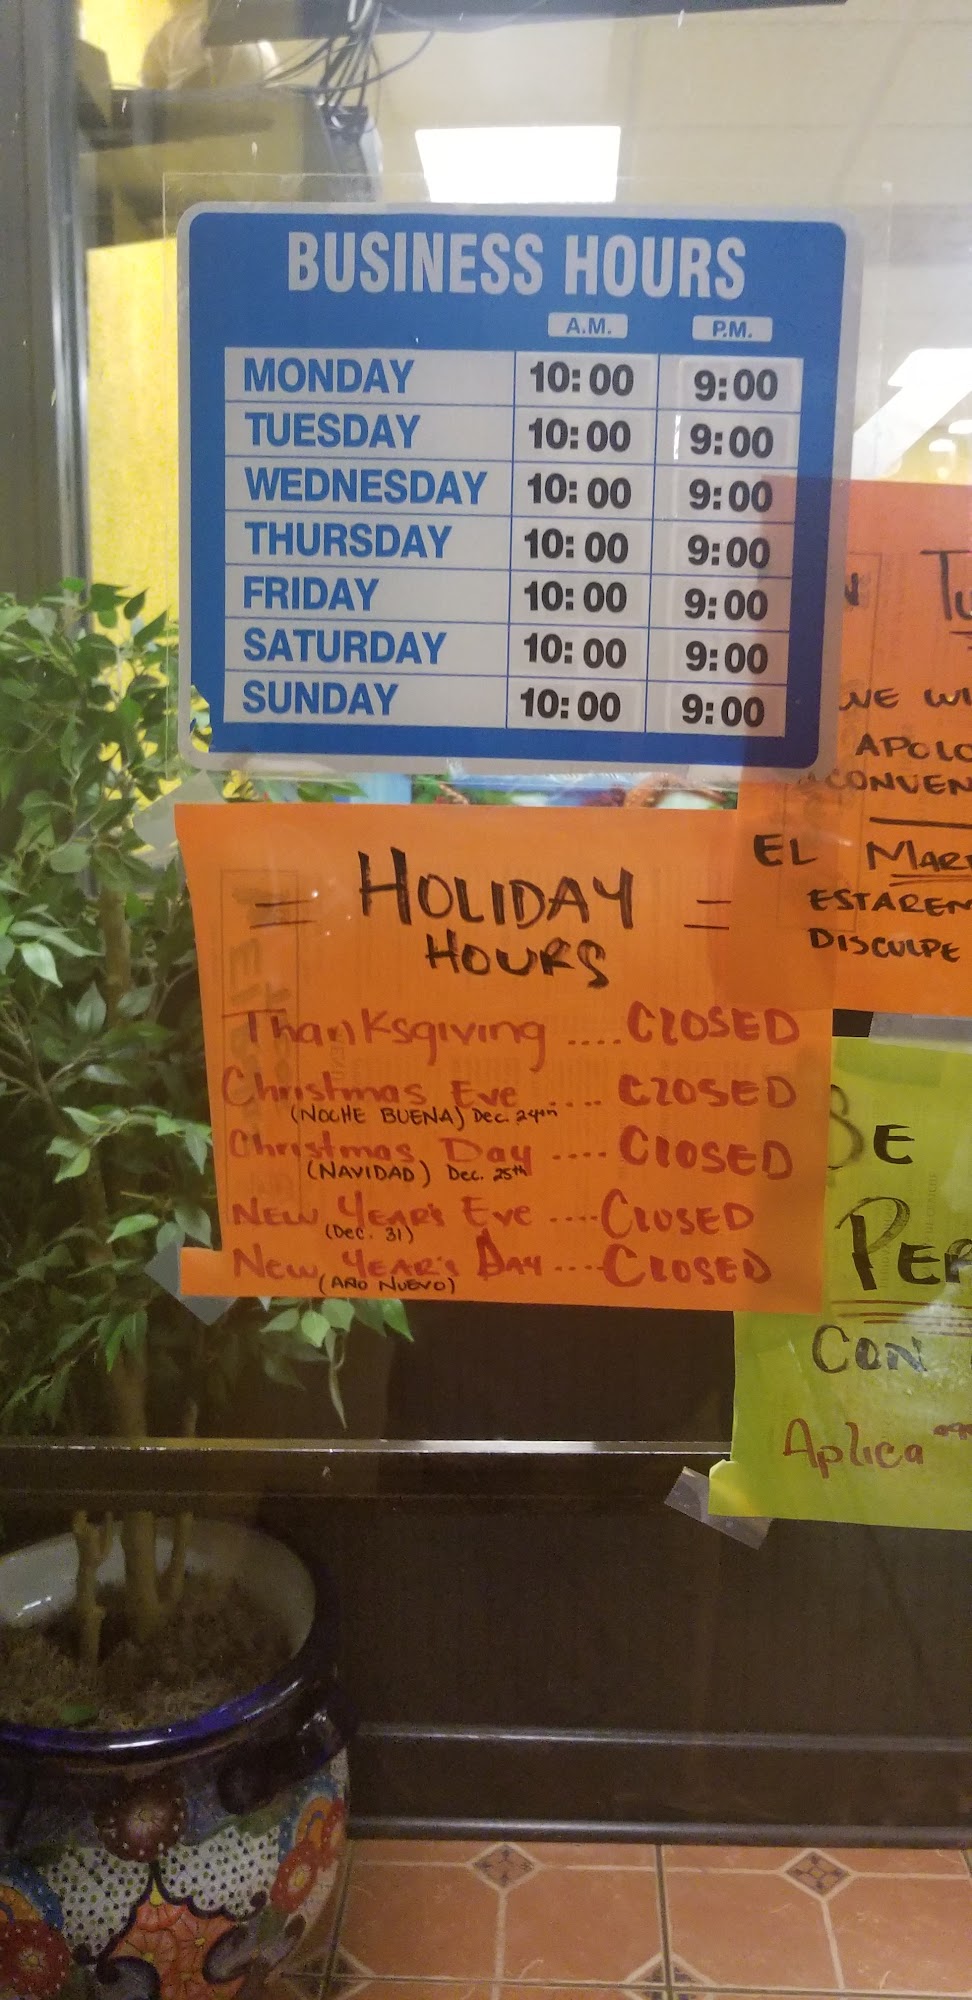 BUSINESS HOURS
A.M. P.M.
MONDAY 10:00 9:00
TUESDAY 10:00 9:00
WEDNESDAY 10:00 9:00
THURSDAY 10:00 9:00
FRIDAY 10:00 9:00
SATURDAY 10:00 9:00
SUNDAY 10:00 9:00
= HOLIDAY =
HOURS
Thanksgiving .... CLOSED
Christmas Eve .... CLOSED
(NOCHE BUENA) Dec. 24th
Christmas Day .... CLOSED
(NAVIDAD) Dec. 25th
NEW YEAR'S EVE .... CLOSED
(Dec. 31)
NEW YEAR'S DAY .... CLOSED
(AÑO NUEVO)
WE
APOLO
CONVEN
EL MAR
ESTAREM
DISCULPE
SE
PER
CON
Aplica